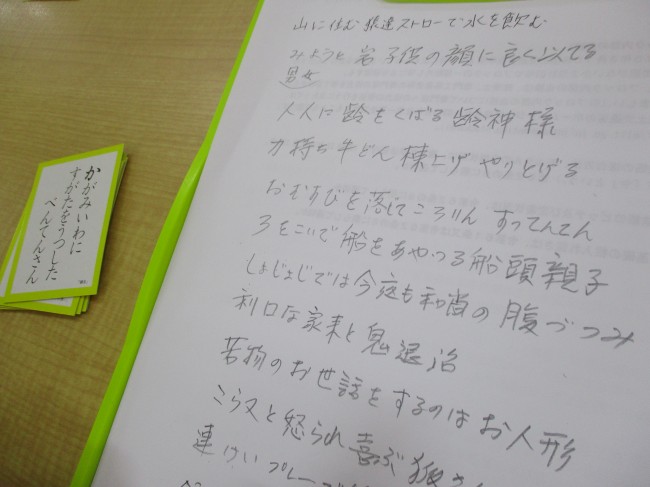 かがみいわに
すがたをうつした
べんてんさん
山に住む 狼達ストローで水を飲む
みようと 岩 子供の顔に良く似てる
男女
人人に齢をくばる齢神様
力持ち牛どん棟上げやりとげる
おむすびを落してころりん すってんてん
ろをこいで船をあやつる船頭親子
しょじょじでは今夜も和尚の腹づつみ
利口な家来と鬼退治
若物のお世話をするのはお人形
こら又と怒られ喜ぶ狐さ
連けいプレーで